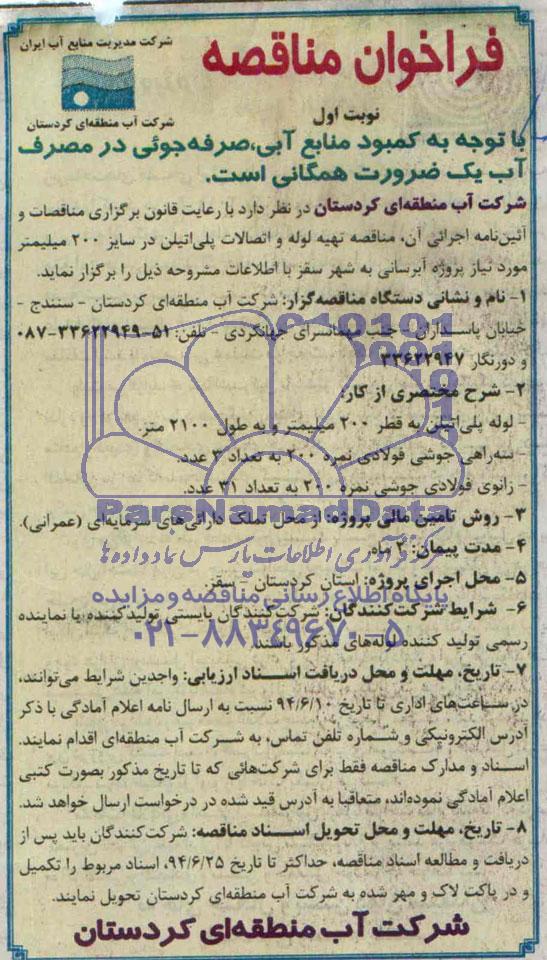 شرکت مدیریت منابع آب ایران
شرکت آب منطقه‌ای کردستان
فراخوان مناقصه
نوبت اول
با توجه به کمبود منابع آبی،صرفه‌جوئی در مصرف
آب یک ضرورت همگانی است.
شرکت آب منطقه‌ای کردستان در نظر دارد با رعایت قانون برگزاری مناقصات و
آئین‌نامه اجرائی آن، مناقصه تهیه لوله و اتصالات پلی‌اتیلن در سایز ۲۰۰ میلیمتر
مورد نیاز پروژه آبرسانی به شهر سقز با اطلاعات مشروحه ذیل را برگزار نماید.
۱- نام و نشانی دستگاه مناقصه‌گزار: شرکت آب منطقه‌ای کردستان - سنندج -
خیابان پاسداران - جنب میهمانسرای جهانگردی - تلفن: ۵۱-۳۳۶۲۲۹۴۹-۰۸۷
و دورنگار ۳۳۶۲۲۹۴۷
۲- شرح مختصری از کار:
- لوله پلی‌اتیلن به قطر ۲۰۰ میلیمتر و به طول ۲۱۰۰ متر.
- سه‌راهی جوشی فولادی نمره ۲۰۰ به تعداد ۳ عدد.
- زانوی فولادی جوشی نمره ۲۰۰ به تعداد ۳۱ عدد.
۳- روش تامین مالی پروژه: از محل تملک دارائی‌های سرمایه‌ای (عمرانی).
۴- مدت پیمان: ماه.
۵- محل اجرای پروژه: استان کردستان - سقز.
۶- شرایط شرکت‌کنندگان: شرکت‌کنندگان بایستی تولیدکننده یا نماینده
رسمی تولید کننده لوله‌های مذکور باشند.
۷- تاریخ، مهلت و محل دریافت اسناد ارزیابی: واجدین شرایط می‌توانند،
در ساعت‌های اداری تا تاریخ ۹۴/۶/۱۰ نسبت به ارسال نامه اعلام آمادگی با ذکر
آدرس الکترونیکی و شماره تلفن تماس، به شرکت آب منطقه‌ای اقدام نمایند.
اسناد و مدارک مناقصه فقط برای شرکت‌هائی که تا تاریخ مذکور بصورت کتبی
اعلام آمادگی نموده‌اند، متعاقبا به آدرس قید شده در درخواست ارسال خواهد شد.
۸- تاریخ، مهلت و محل تحویل اسناد مناقصه: شرکت‌کنندگان باید پس از
دریافت و مطالعه اسناد مناقصه، حداکثر تا تاریخ ۹۴/۶/۲۵، اسناد مربوط را تکمیل
و در پاکت لاک و مهر شده به شرکت آب منطقه‌ای کردستان تحویل نمایند.
شرکت آب منطقه‌ای کردستان
ParsNamadData
مرکز فرآوری اطلاعات پارس نماد داده‌ها
پایگاه اطلاع رسانی مناقصه و مزایده
۰۲۱-۸۸۳۴۹۶۷۰-۵